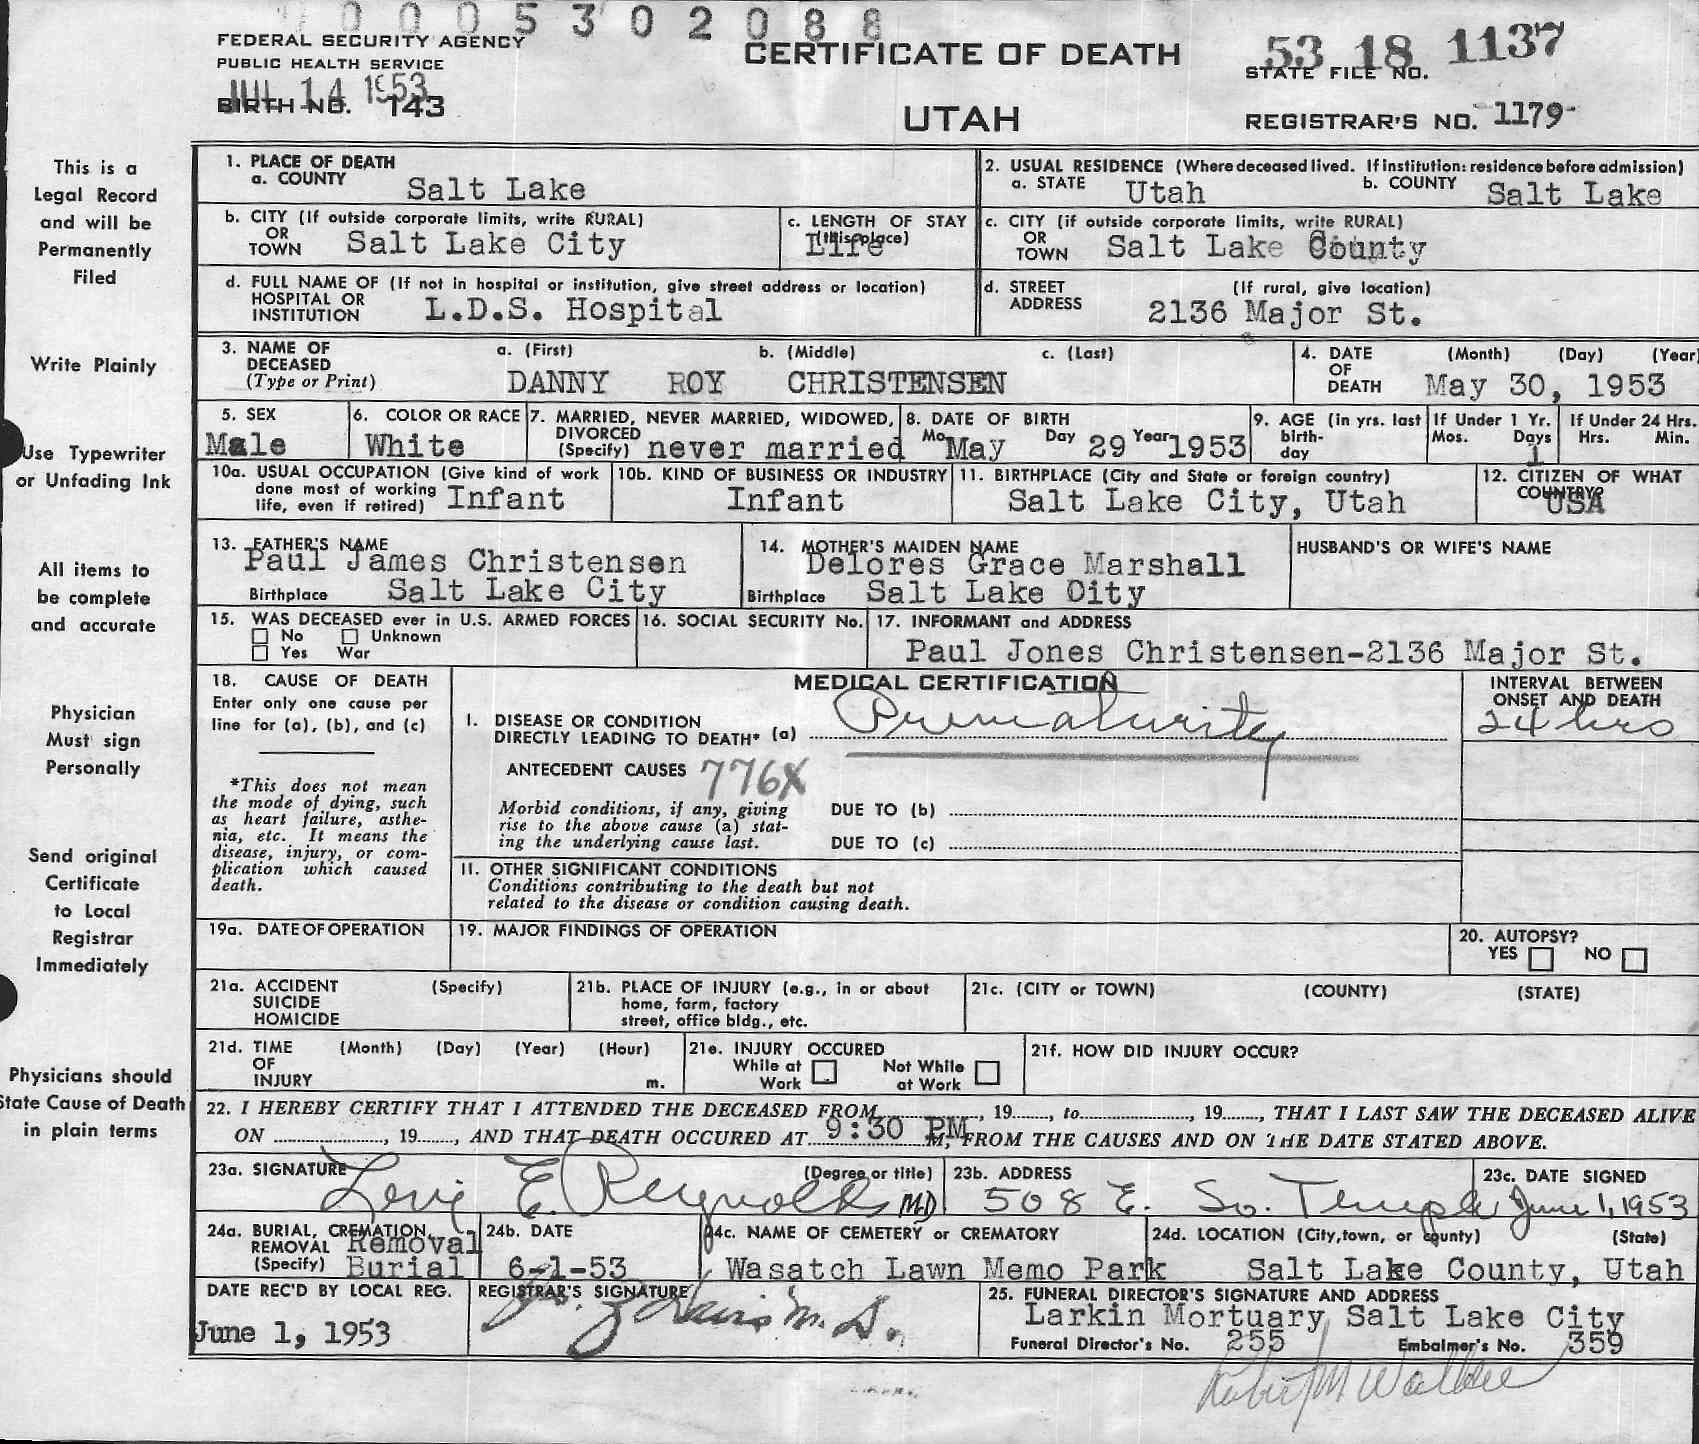 0 0 0 5 3 0 2 0 8 8
FEDERAL SECURITY AGENCY
PUBLIC HEALTH SERVICE
JUL 14 1953
BIRTH NO. 143
CERTIFICATE OF DEATH
UTAH
53 18 1137
STATE FILE NO.
REGISTRAR'S NO. 1179-
This is a
Legal Record
and will be
Permanently
Filed
Write Plainly
Use Typewriter
or Unfading Ink
All items to
be complete
and accurate
Physician
Must sign
Personally
Send original
Certificate
to Local
Registrar
Immediately
Physicians should
State Cause of Death
in plain terms
1. PLACE OF DEATH
a. COUNTY Salt Lake
2. USUAL RESIDENCE (Where deceased lived. If institution: residence before admission)
a. STATE Utah b. COUNTY Salt Lake
b. CITY (If outside corporate limits, write RURAL)
OR
TOWN Salt Lake City
c. LENGTH OF STAY
(this place)
Life
c. CITY (if outside corporate limits, write RURAL)
OR
TOWN Salt Lake County
d. FULL NAME OF (If not in hospital or institution, give street address or location)
HOSPITAL OR
INSTITUTION L.D.S. Hospital
d. STREET (If rural, give location)
ADDRESS 2136 Major St.
3. NAME OF a. (First) b. (Middle) c. (Last)
DECEASED
(Type or Print) DANNY ROY CHRISTENSEN
4. DATE (Month) (Day) (Year)
OF
DEATH May 30, 1953
5. SEX
Male
6. COLOR OR RACE
White
7. MARRIED, NEVER MARRIED, WIDOWED,
DIVORCED
(Specify) never married
8. DATE OF BIRTH
Mo May Day 29 Year 1953
9. AGE (in yrs. last
birth-
day
If Under 1 Yr.
Mos. Days
1
If Under 24 Hrs.
Hrs. Min.
10a. USUAL OCCUPATION (Give kind of work
done most of working
life, even if retired) Infant
10b. KIND OF BUSINESS OR INDUSTRY
Infant
11. BIRTHPLACE (City and State or foreign country)
Salt Lake City, Utah
12. CITIZEN OF WHAT
COUNTRY?
USA
13. FATHER'S NAME
Paul James Christensen
Birthplace Salt Lake City
14. MOTHER'S MAIDEN NAME
Delores Grace Marshall
Birthplace Salt Lake City
HUSBAND'S OR WIFE'S NAME
15. WAS DECEASED ever in U.S. ARMED FORCES
No Unknown
Yes War
16. SOCIAL SECURITY No.
17. INFORMANT and ADDRESS
Paul Jones Christensen-2136 Major St.
18. CAUSE OF DEATH
Enter only one cause per
line for (a), (b), and (c)
*This does not mean
the mode of dying, such
as heart failure, asthe-
nia, etc. It means the
disease, injury, or com-
plication which caused
death.
MEDICAL CERTIFICATION
I. DISEASE OR CONDITION
DIRECTLY LEADING TO DEATH* (a) Prematurity
ANTECEDENT CAUSES 776X
Morbid conditions, if any, giving
rise to the above cause (a) stat-
ing the underlying cause last.
DUE TO (b)
DUE TO (c)
INTERVAL BETWEEN
ONSET AND DEATH
24 hrs
II. OTHER SIGNIFICANT CONDITIONS
Conditions contributing to the death but not
related to the disease or condition causing death.
19a. DATE OF OPERATION
19. MAJOR FINDINGS OF OPERATION
20. AUTOPSY?
YES NO
21a. ACCIDENT (Specify)
SUICIDE
HOMICIDE
21b. PLACE OF INJURY (e.g., in or about
home, farm, factory
street, office bldg., etc.
21c. (CITY or TOWN) (COUNTY) (STATE)
21d. TIME (Month) (Day) (Year) (Hour)
OF
INJURY m.
21e. INJURY OCCURED
While at Not While
Work at Work
21f. HOW DID INJURY OCCUR?
22. I HEREBY CERTIFY THAT I ATTENDED THE DECEASED FROM, 19, to, 19, THAT I LAST SAW THE DECEASED ALIVE
ON, 19, AND THAT DEATH OCCURED AT 9:30 PM M, FROM THE CAUSES AND ON THE DATE STATED ABOVE.
23a. SIGNATURE (Degree or title)
Levi E. Reynolds MD
23b. ADDRESS
508 E. So. Temple
23c. DATE SIGNED
June 1, 1953
24a. BURIAL, CREMATION,
REMOVAL Removal
(Specify) Burial
24b. DATE
6-1-53
24c. NAME OF CEMETERY or CREMATORY
Wasatch Lawn Memo Park
24d. LOCATION (City, town, or county) (State)
Salt Lake County, Utah
DATE REC'D BY LOCAL REG.
June 1, 1953
REGISTRAR'S SIGNATURE
M. D.
25. FUNERAL DIRECTOR'S SIGNATURE AND ADDRESS
Larkin Mortuary Salt Lake City
Funeral Director's No. 255 Embalmer's No. 359